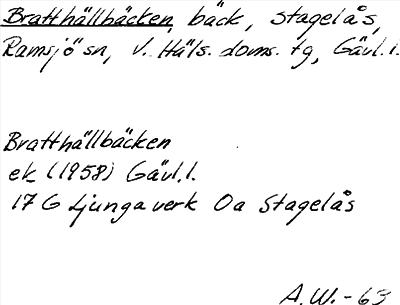 Bratthällbäcken, bäck, Stagelås,
Ramsjö sn, V. Häls. doms. tg, Gävl. l.
Bratthällbäcken
ek (1958) Gävl. l.
17 G Ljungaverk Oa Stagelås
A.W. - 63